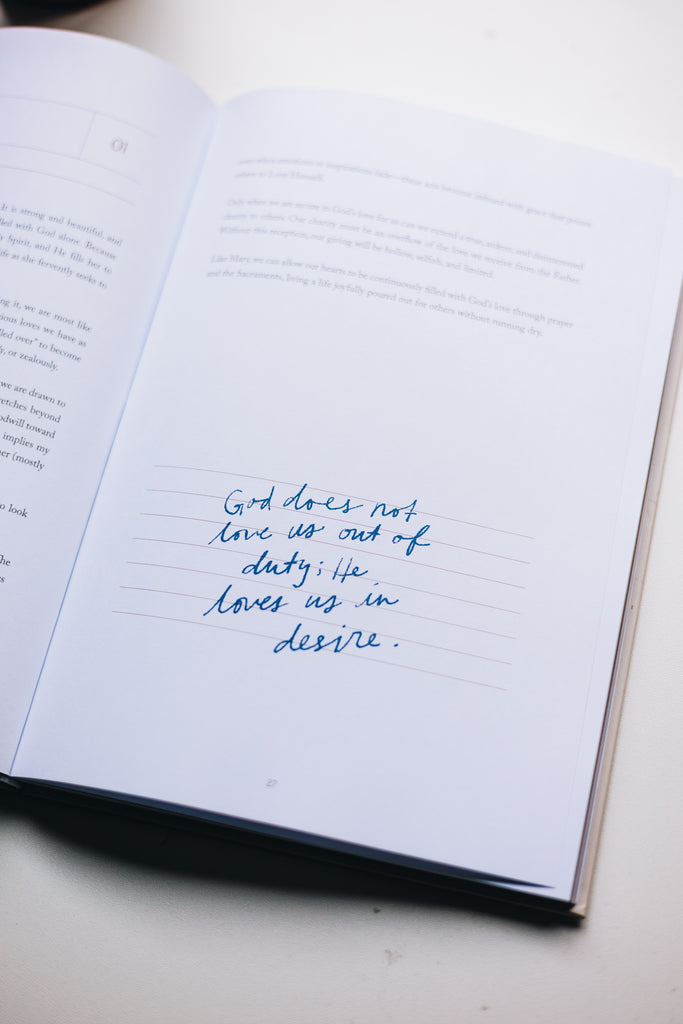 01
It is strong and beautiful, and
filled with God alone. Because
Spirit, and He fills her to
life as she fervently seeks to
ing it, we are most like
ious loves we have as
led over" to become
y, or zealously.
we are drawn to
retches beyond
odwill toward
implies my
her (mostly
to look
The
es
others to Love Himself.
Only when we are secure in God's love for us can we extend a true, ardent, and disinterested
charity to others. Our charity must be an overflow of the love we receive from the Father.
Without this reception, our giving will be hollow, selfish, and limited.
Like Mary, we can allow our hearts to be continuously filled with God's love through prayer
and the Sacraments, living a life joyfully poured out for others without running dry.
God does not
love us out of
duty; He
loves us in
desire.
27